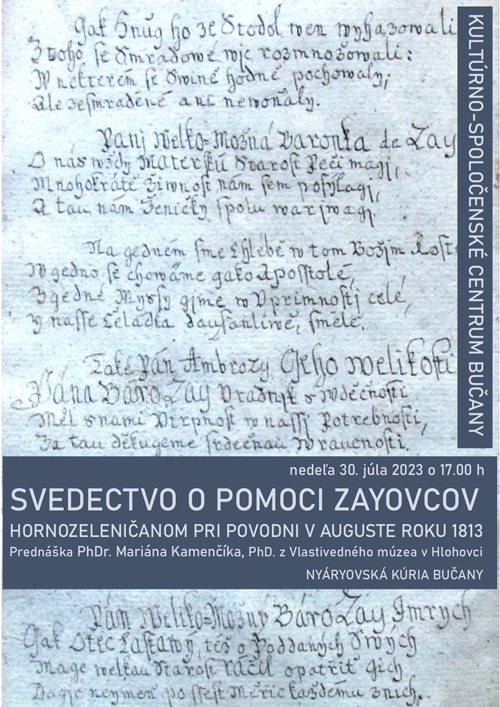 Gak hnug ho ze Stodol wen wyhazowali
Z toho se Smradowe wjc rozmnozowali:
W nekterem se Swine hodne pochowaly,
Ale zesmradene ani newonaly.
Panj Welko=Možná Baronka de Zay
O nás wždy Materskú Starost Peči magj,
Mnohokráte Žiwnost nám sem posylagj,
A tau nám Ženičky spolu warjwagj.
Na gedném sme Chlebě w tom Božjm
W gedno se chowáme gako Aposstolé,
Z gedné Mysy gjme w Uprimnostj celé,
y nasse Čeládka daufanliwě, smělé.
Také Pán Ambrozy Geho welikosti
Pána Báro Zay Uradnjk s wděčnosti
Měl s nami Utrpnost w nassj Potrebnosti,
Za tau děkugeme srdečnau Wraucnosti.
KULTÚRNO-SPOLOČENSKÉ CENTRUM BUČANY
nedeľa 30. júla 2023 o 17.00 h
SVEDECTVO O POMOCI ZAYOVCOV
HORNOZELENIČANOM PRI POVODNI V AUGUSTE ROKU 1813
Prednáška PhDr. Mariána Kamenčíka, PhD. z Vlastivedného múzea v Hlohovci
NYÁRYOVSKÁ KÚRIA BUČANY
Pán Weliko=Možny Báro Zay Imrych
Gak Otec Laskawý, též o Poddaných Swých
Mage welkau Starost ráčil opatřit gich
Dagic neymen po ssest Měřic každému z nich.